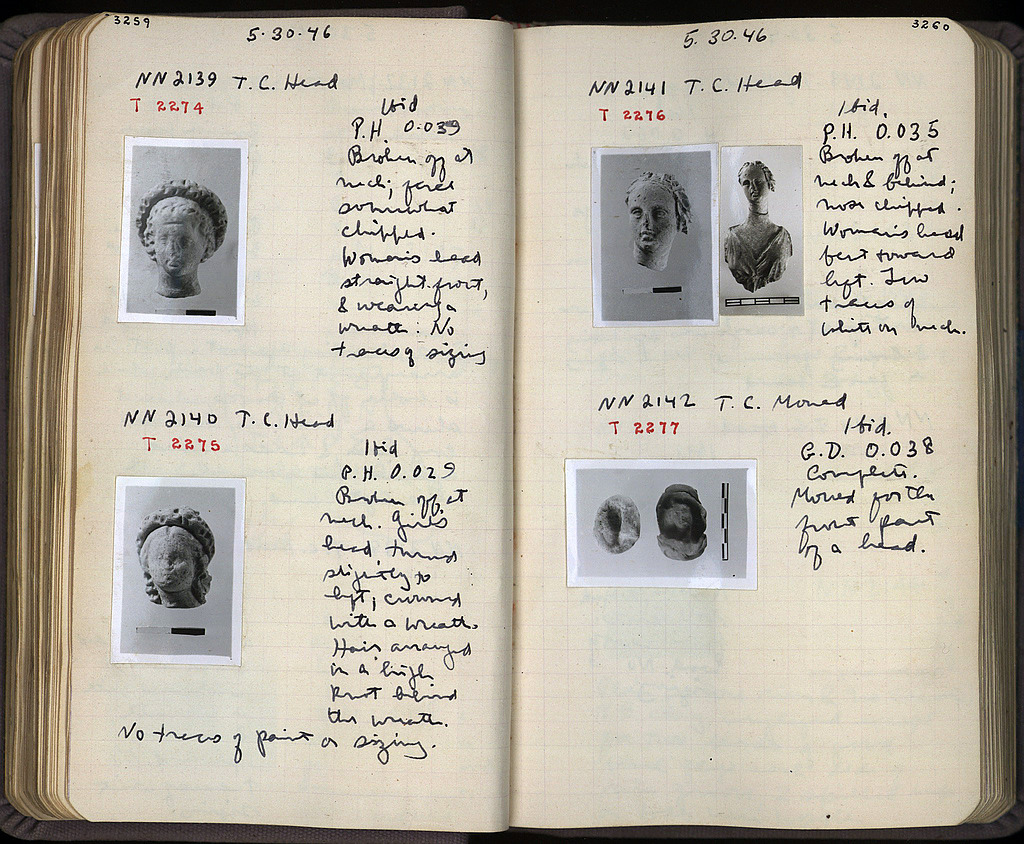 3259
5.30.46
NN 2139 T.C. Head
T 2274
Ibid
P.H. 0.039
Broken off at
neck; face
somewhat
chipped.
Woman's head
straight front,
& wearing a
wreath. No
traces of sizing
NN 2140 T.C. Head
T 2275
Ibid
P.H. 0.029
Broken off at
neck. Girl's
head turned
slightly to
left, crowned
with a wreath.
Hair arranged
in a high
knot behind
the wreath.
No traces of paint or sizing.
3260
5.30.46
NN 2141 T.C. Head
T 2276
Ibid.
P.H. 0.035
Broken off at
neck & behind;
nose chipped.
Woman's head
bent toward
left. Few
traces of
white on neck.
NN 2142 T.C. Mould
T 2277
Ibid.
G.D. 0.038
Complete.
Mould for the
front part
of a head.